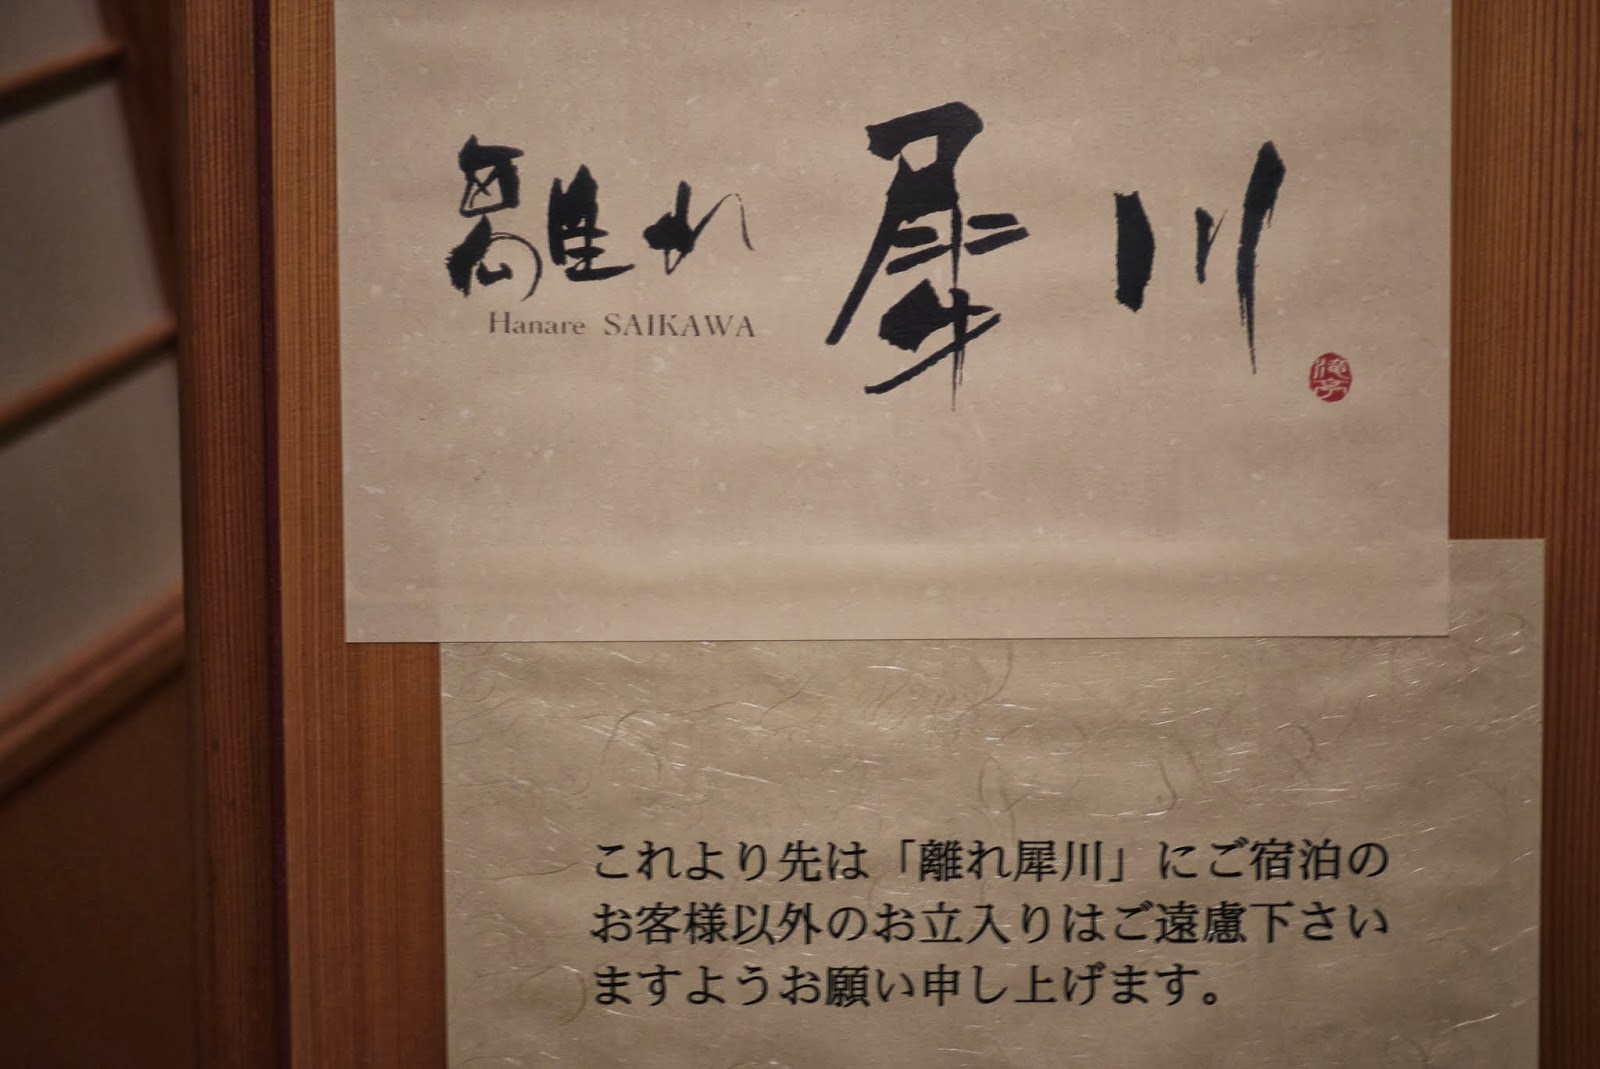 離れ 犀川
Hanare SAIKAWA
滝亭
これより先は「離れ犀川」にご宿泊の
お客様以外のお立入りはご遠慮下さい
ますようお願い申し上げます。